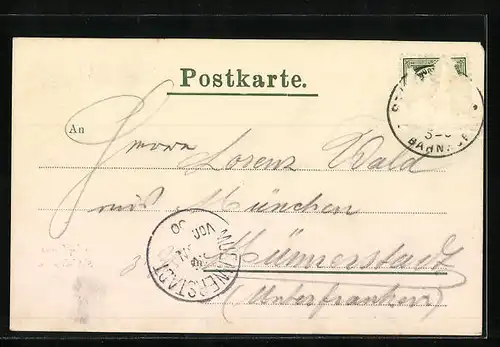 Postkarte.
An
Herrn Lorenz Wald
aus München
3. Z. Münnerstadt
(Unterfranken)
MÜNNERSTADT
VON
00
BAHNHOF